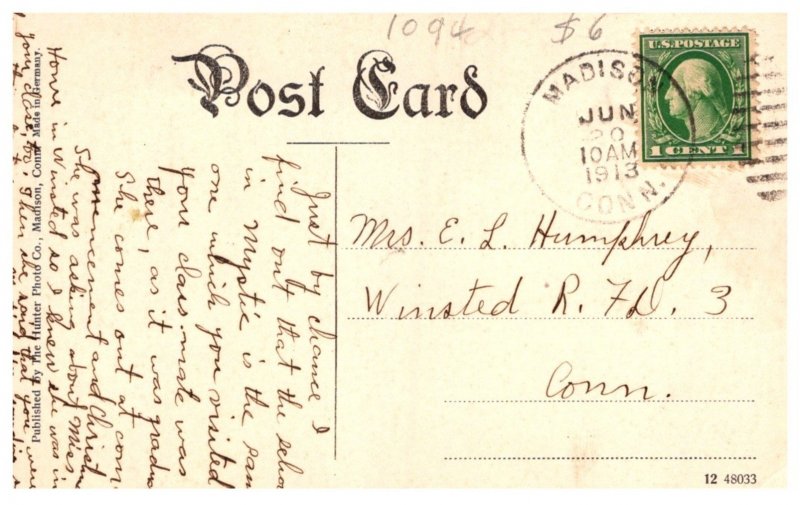 1094 $6
Post Card
MADISON
JUN
20
10AM
1913
CONN.
U.S.POSTAGE
1 CENT 1
Mrs. E. L. Humphrey,
Winsted R. F.D. 3
Conn.
12 48033
Just by chance I
find out that the scho
in Mystic is the sam
one which you visited
your class mate was
there, as it was gradua
She comes out at com
mencement and Christm
She was asking about Miss
Home in Winsted so I knew she was in
your class, Then she said that you were
Published by The Hunter Photo Co., Madison, Conn. Made in Germany.